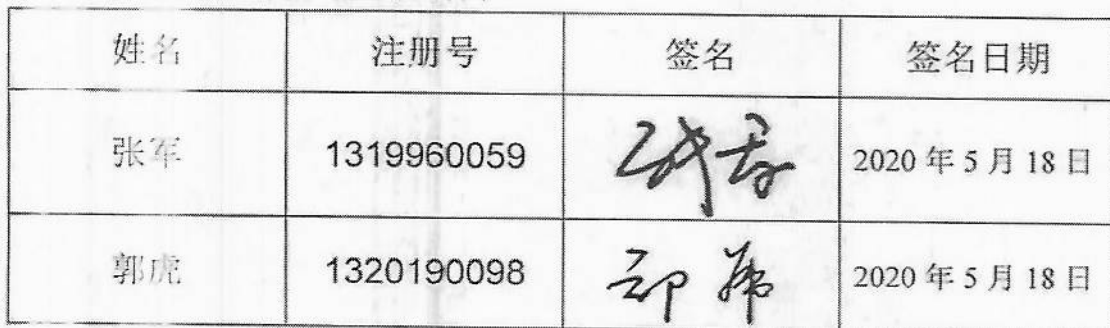 姓名 注册号 签名 签名日期
张军 1319960059 张军 2020年5月18日
郭虎 1320190098 郭虎 2020年5月18日